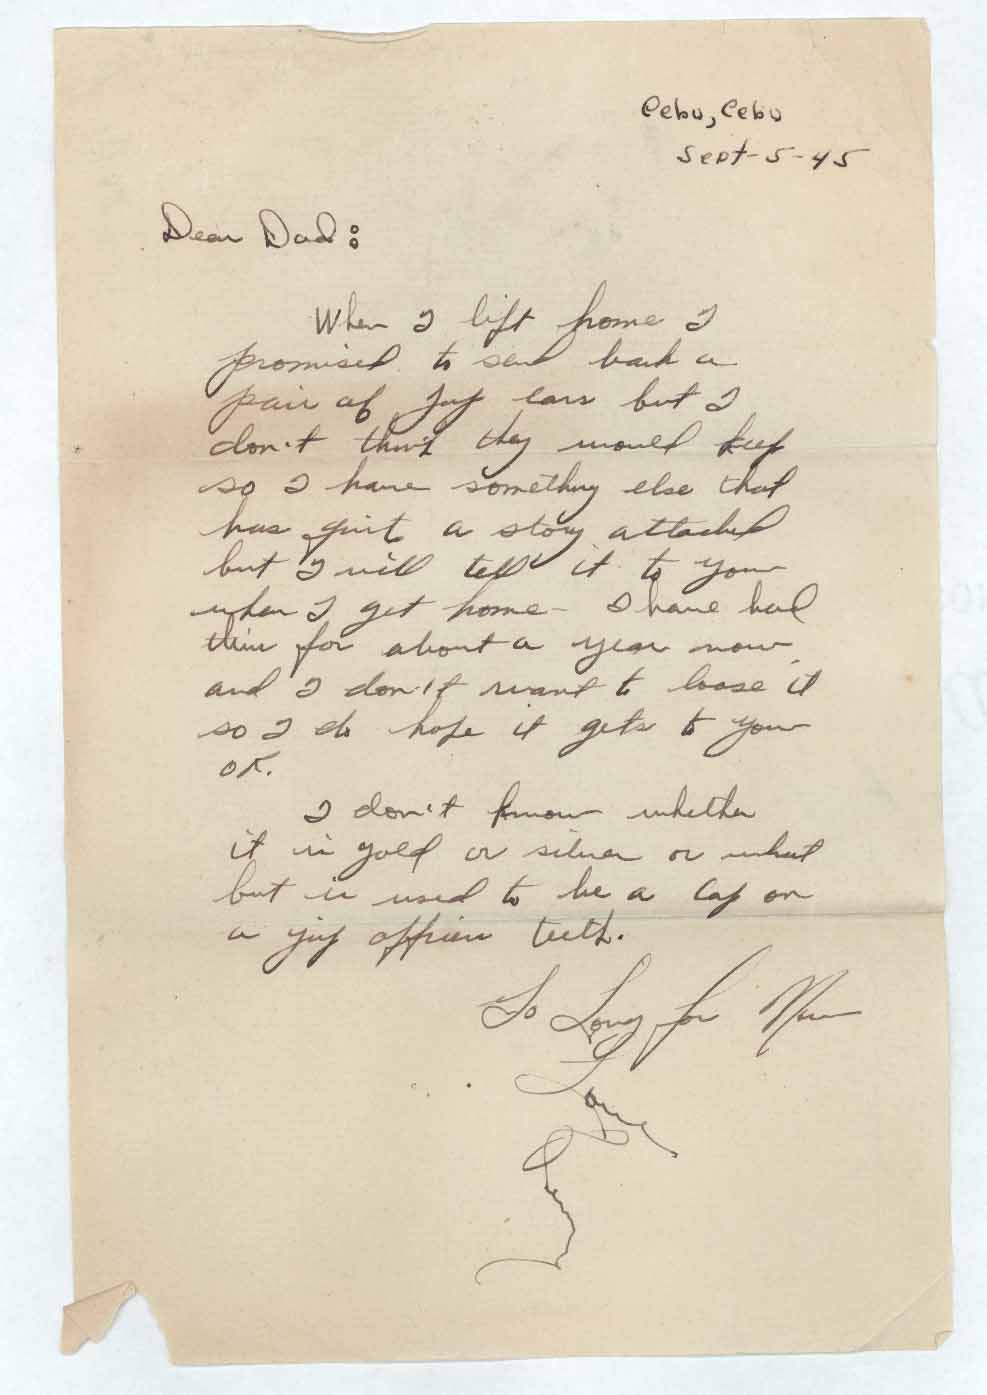 Cebu, Cebu
Sept-5-45
Dear Dad:
When I lift home I
promised to send back a
pair of Jap ears but I
don't think they would keep
so I have something else that
has quit a story attached
but I will tell it to you
when I get home- I have had
this for about a year now
and I don't want to loose it
so I do hope it gets to you
OK.
I don't know whether
it is gold or silver or what
but is used to be a Cap on
a jap officers teeth.
So Long for Now
Love